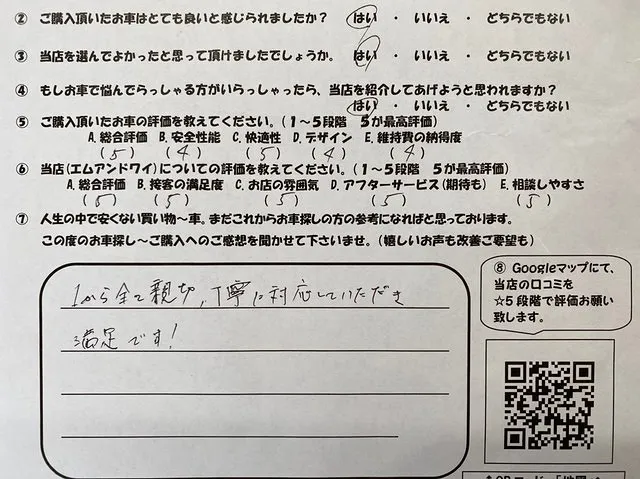 ② ご購入頂いたお車はとても良いと感じられましたか? はい ・ いいえ ・ どちらでもない
③ 当店を選んでよかったと思って頂けましたでしょうか。 はい ・ いいえ ・ どちらでもない
④ もしお車で悩んでらっしゃる方がいらっしゃったら、当店を紹介してあげようと思われますか?
はい ・ いいえ ・ どちらでもない
⑤ ご購入頂いたお車の評価を教えてください。(1~5段階 5が最高評価)
A.総合評価 B.安全性能 C.快適性 D.デザイン E.維持費の納得度
(5) (4) (5) (4) (4)
⑥ 当店(エムアンドワイ)についての評価を教えてください。(1~5段階 5が最高評価)
A.総合評価 B.接客の満足度 C.お店の雰囲気 D.アフターサービス(期待も) E.相談しやすさ
(5) (5) (5) (5) (5)
⑦ 人生の中で安くない買い物~車。まだこれからお車探しの方の参考になればと思っております。
この度のお車探し~ご購入へのご感想を聞かせて下さいませ。(嬉しいお声も改善ご要望も)
1から全て親切,丁寧に対応していただき
満足です!
⑧ Googleマップにて、
当店の口コミを
☆5段階で評価お願い
致します。